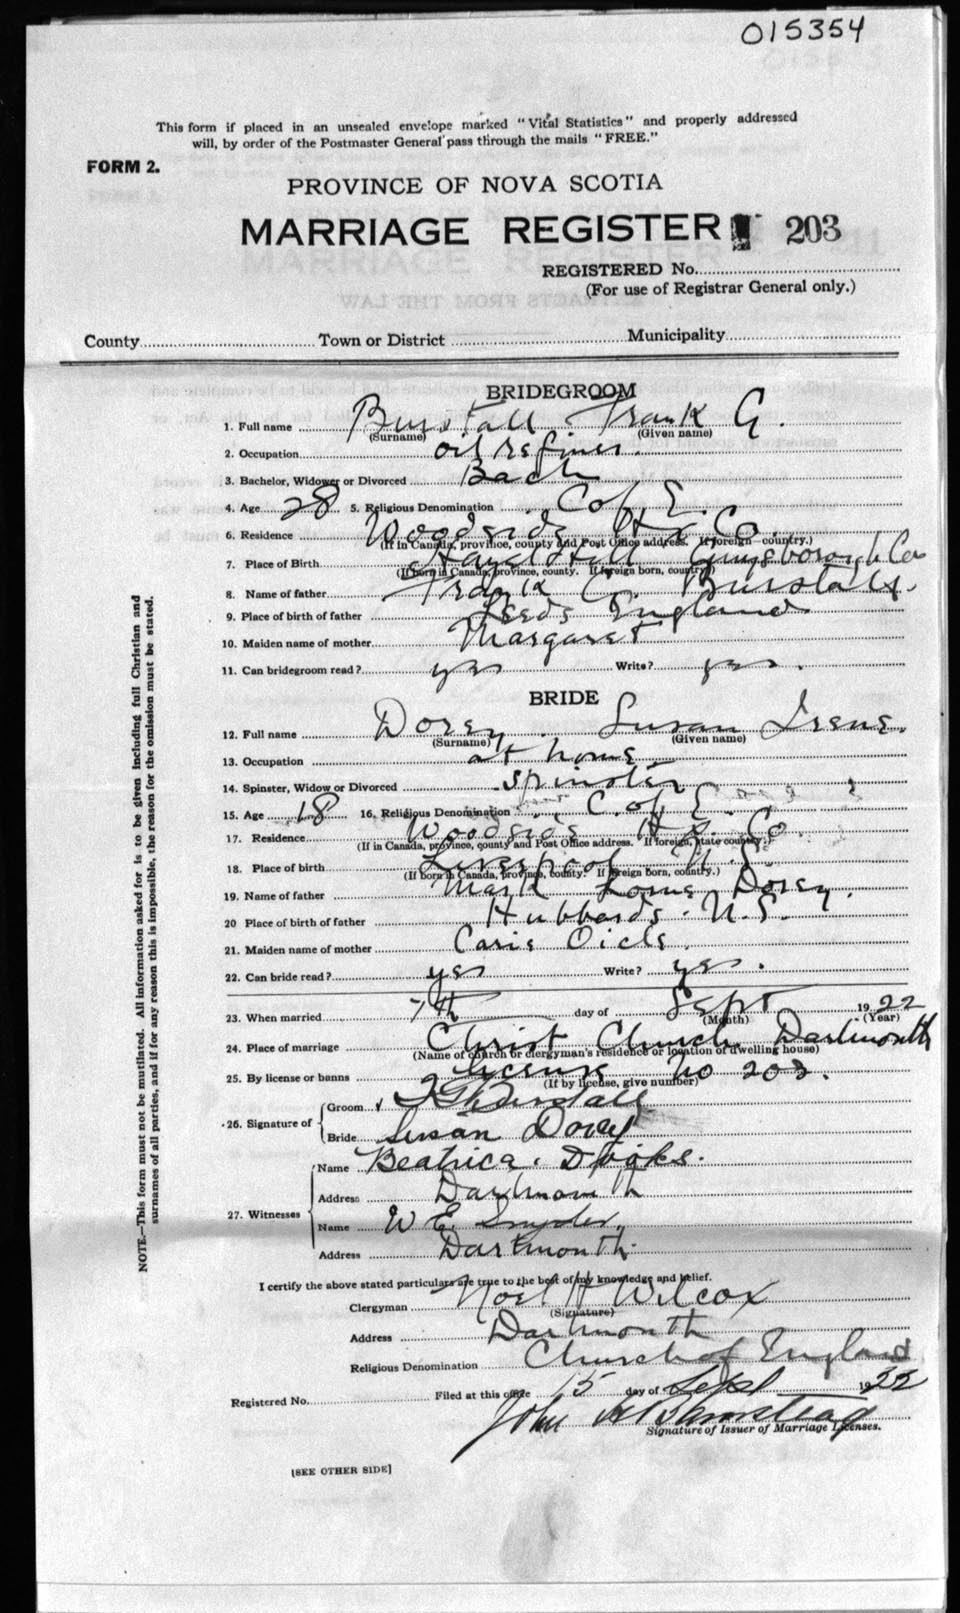 015354
This form if placed in an unsealed envelope marked "Vital Statistics" and properly addressed
will, by order of the Postmaster General pass through the mails "FREE."
FORM 2.
PROVINCE OF NOVA SCOTIA
MARRIAGE REGISTER 203
REGISTERED No.
(For use of Registrar General only.)
County Town or District Municipality
BRIDEGROOM
1. Full name Burstall Frank G.
(Surname) (Given name)
2. Occupation oil refiner.
3. Bachelor, Widower or Divorced Bach
4. Age 28 5. Religious Denomination C of E.
6. Residence Woodside Hx Co.
(If in Canada, province, county and Post Office address. If foreign country.)
7. Place of Birth Hazel Hill Guysborough Co
(If born in Canada, province, county. If foreign born, country)
8. Name of father Frank C. Burstall.
9. Place of birth of father Leeds England
10. Maiden name of mother Margaret
11. Can bridegroom read? yes Write? yes.
BRIDE
12. Full name Dorey Susan Irene.
(Surname) (Given name)
13. Occupation at home
14. Spinster, Widow or Divorced spinster
15. Age 18 16. Religious Denomination C. of E.
17. Residence Woodside Hx. Co.
(If in Canada, province, county and Post Office address. If foreign, state country.)
18. Place of birth Liverpool N.S.
(If born in Canada, province, county. If foreign born, country.)
19. Name of father Mark Lorne Dorey.
20 Place of birth of father Hubbards. N.S.
21. Maiden name of mother Caris Oicle.
22. Can bride read? yes Write? yes.
23. When married 7th day of Sept 1922
(Month) (Year)
24. Place of marriage Christ Church Dartmouth
(Name of church or clergyman's residence or location of dwelling house)
25. By license or banns License No 203.
(If by license, give number)
26. Signature of Groom F G Burstall
Bride Susan Dorey
27. Witnesses Name Beatrice.
Address Dartmouth
Name W E. Snyder,
Address Dartmouth.
I certify the above stated particulars are true to the best of my knowledge and belief.
Clergyman Noel H Wilcox
(Signature)
Address Dartmouth
Religious Denomination Church of England
Registered No. Filed at this office 15 day of Sept 1922
John
Signature of Issuer of Marriage Licenses.
[SEE OTHER SIDE]
NOTE.—This form must not be mutilated. All information asked for is to be given including full Christian and
surnames of all parties, and if for any reason this is impossible, the reason for the omission must be stated.